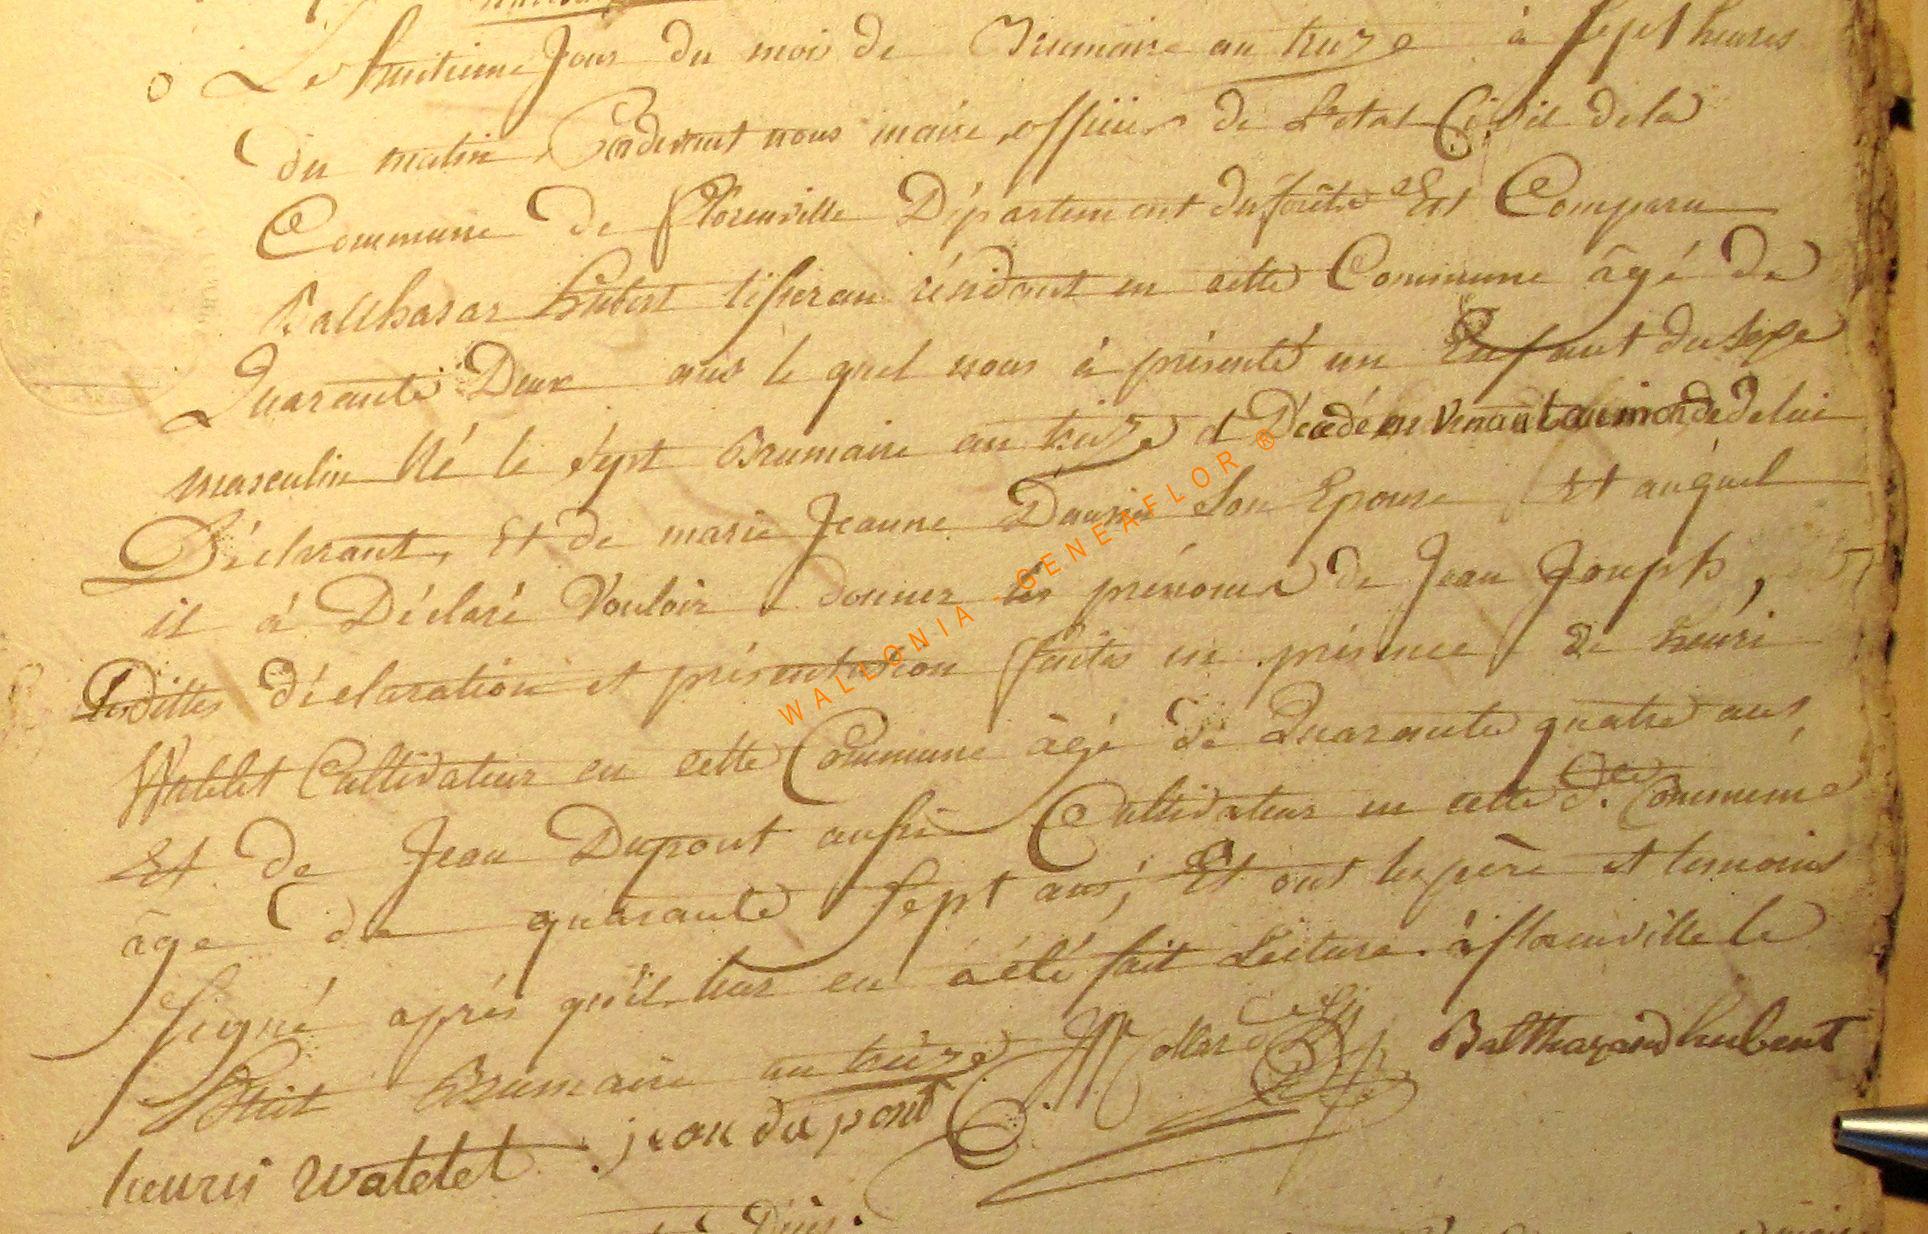 Le huitieme Jour du mois de Brumaire an treize à sept heures
du matin, Pardevant nous maire, officier de L'etat Civil de la
Commune de Florenville Département des forêts Est Comparu
Balthasar hubert tisseran résidant en cette Commune âgé de
Quarante Deux ans le quel nous à présenté un Enfant du sexe
masculin Né le sept Brumaire an treize et Décedé en venant au monde de lui
Déclarant, Et de marie Jeanne Son Epouse Et auquel
il à Déclaré Vouloir donner les prénoms de Jean Joseph,
Lesdittes déclaration et présentation faites en présence de henri
Watelet Cultivateur en cette Commune âgé de Quarante quatre ans,
Et de Jean Dupont aussi Cultivateur en cette de. Commune
âge de quarante sept ans; Et ont les père et temoins
signé aprés qu'il leur en à été fait Lecture. à florenville le
huit Brumaire an treize Balthazard hubert
henri watelet. jean du pont
WALLONIA - GENEAFLOR ®